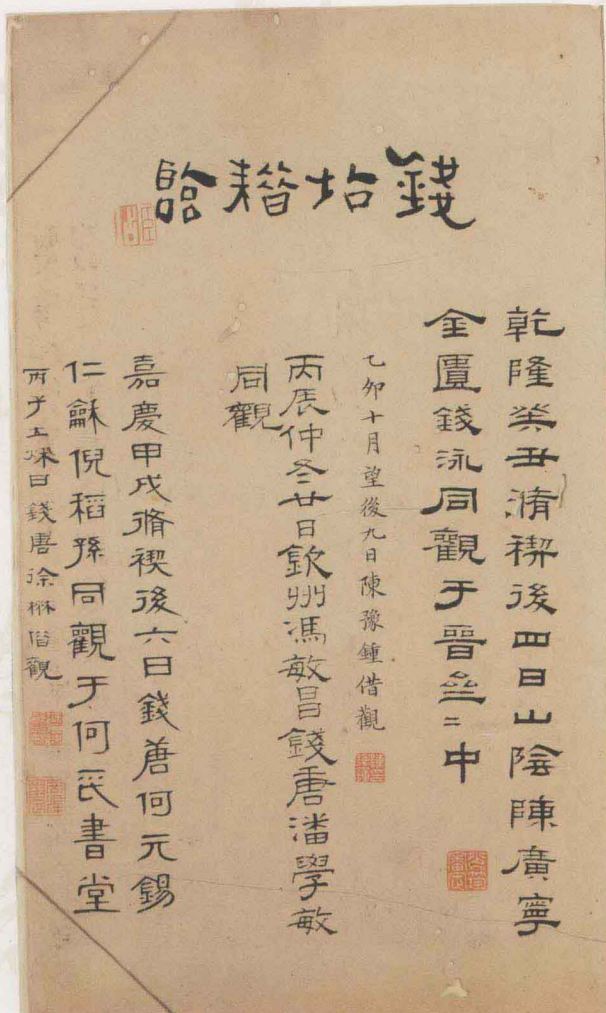 錢坫楷臨
乾隆癸丑脩禊後四日山陰陳廣寧
金匱錢泳同觀于晉叁二中
乙卯十月望後九日陳豫鍾借觀
丙辰仲冬廿日欽州馮敏昌錢唐潘學敏
同觀
嘉慶甲戌脩禊後六日錢唐何元錫
仁龢倪稻孫同觀于何氏書堂
丙子五月 日錢唐徐楙借觀